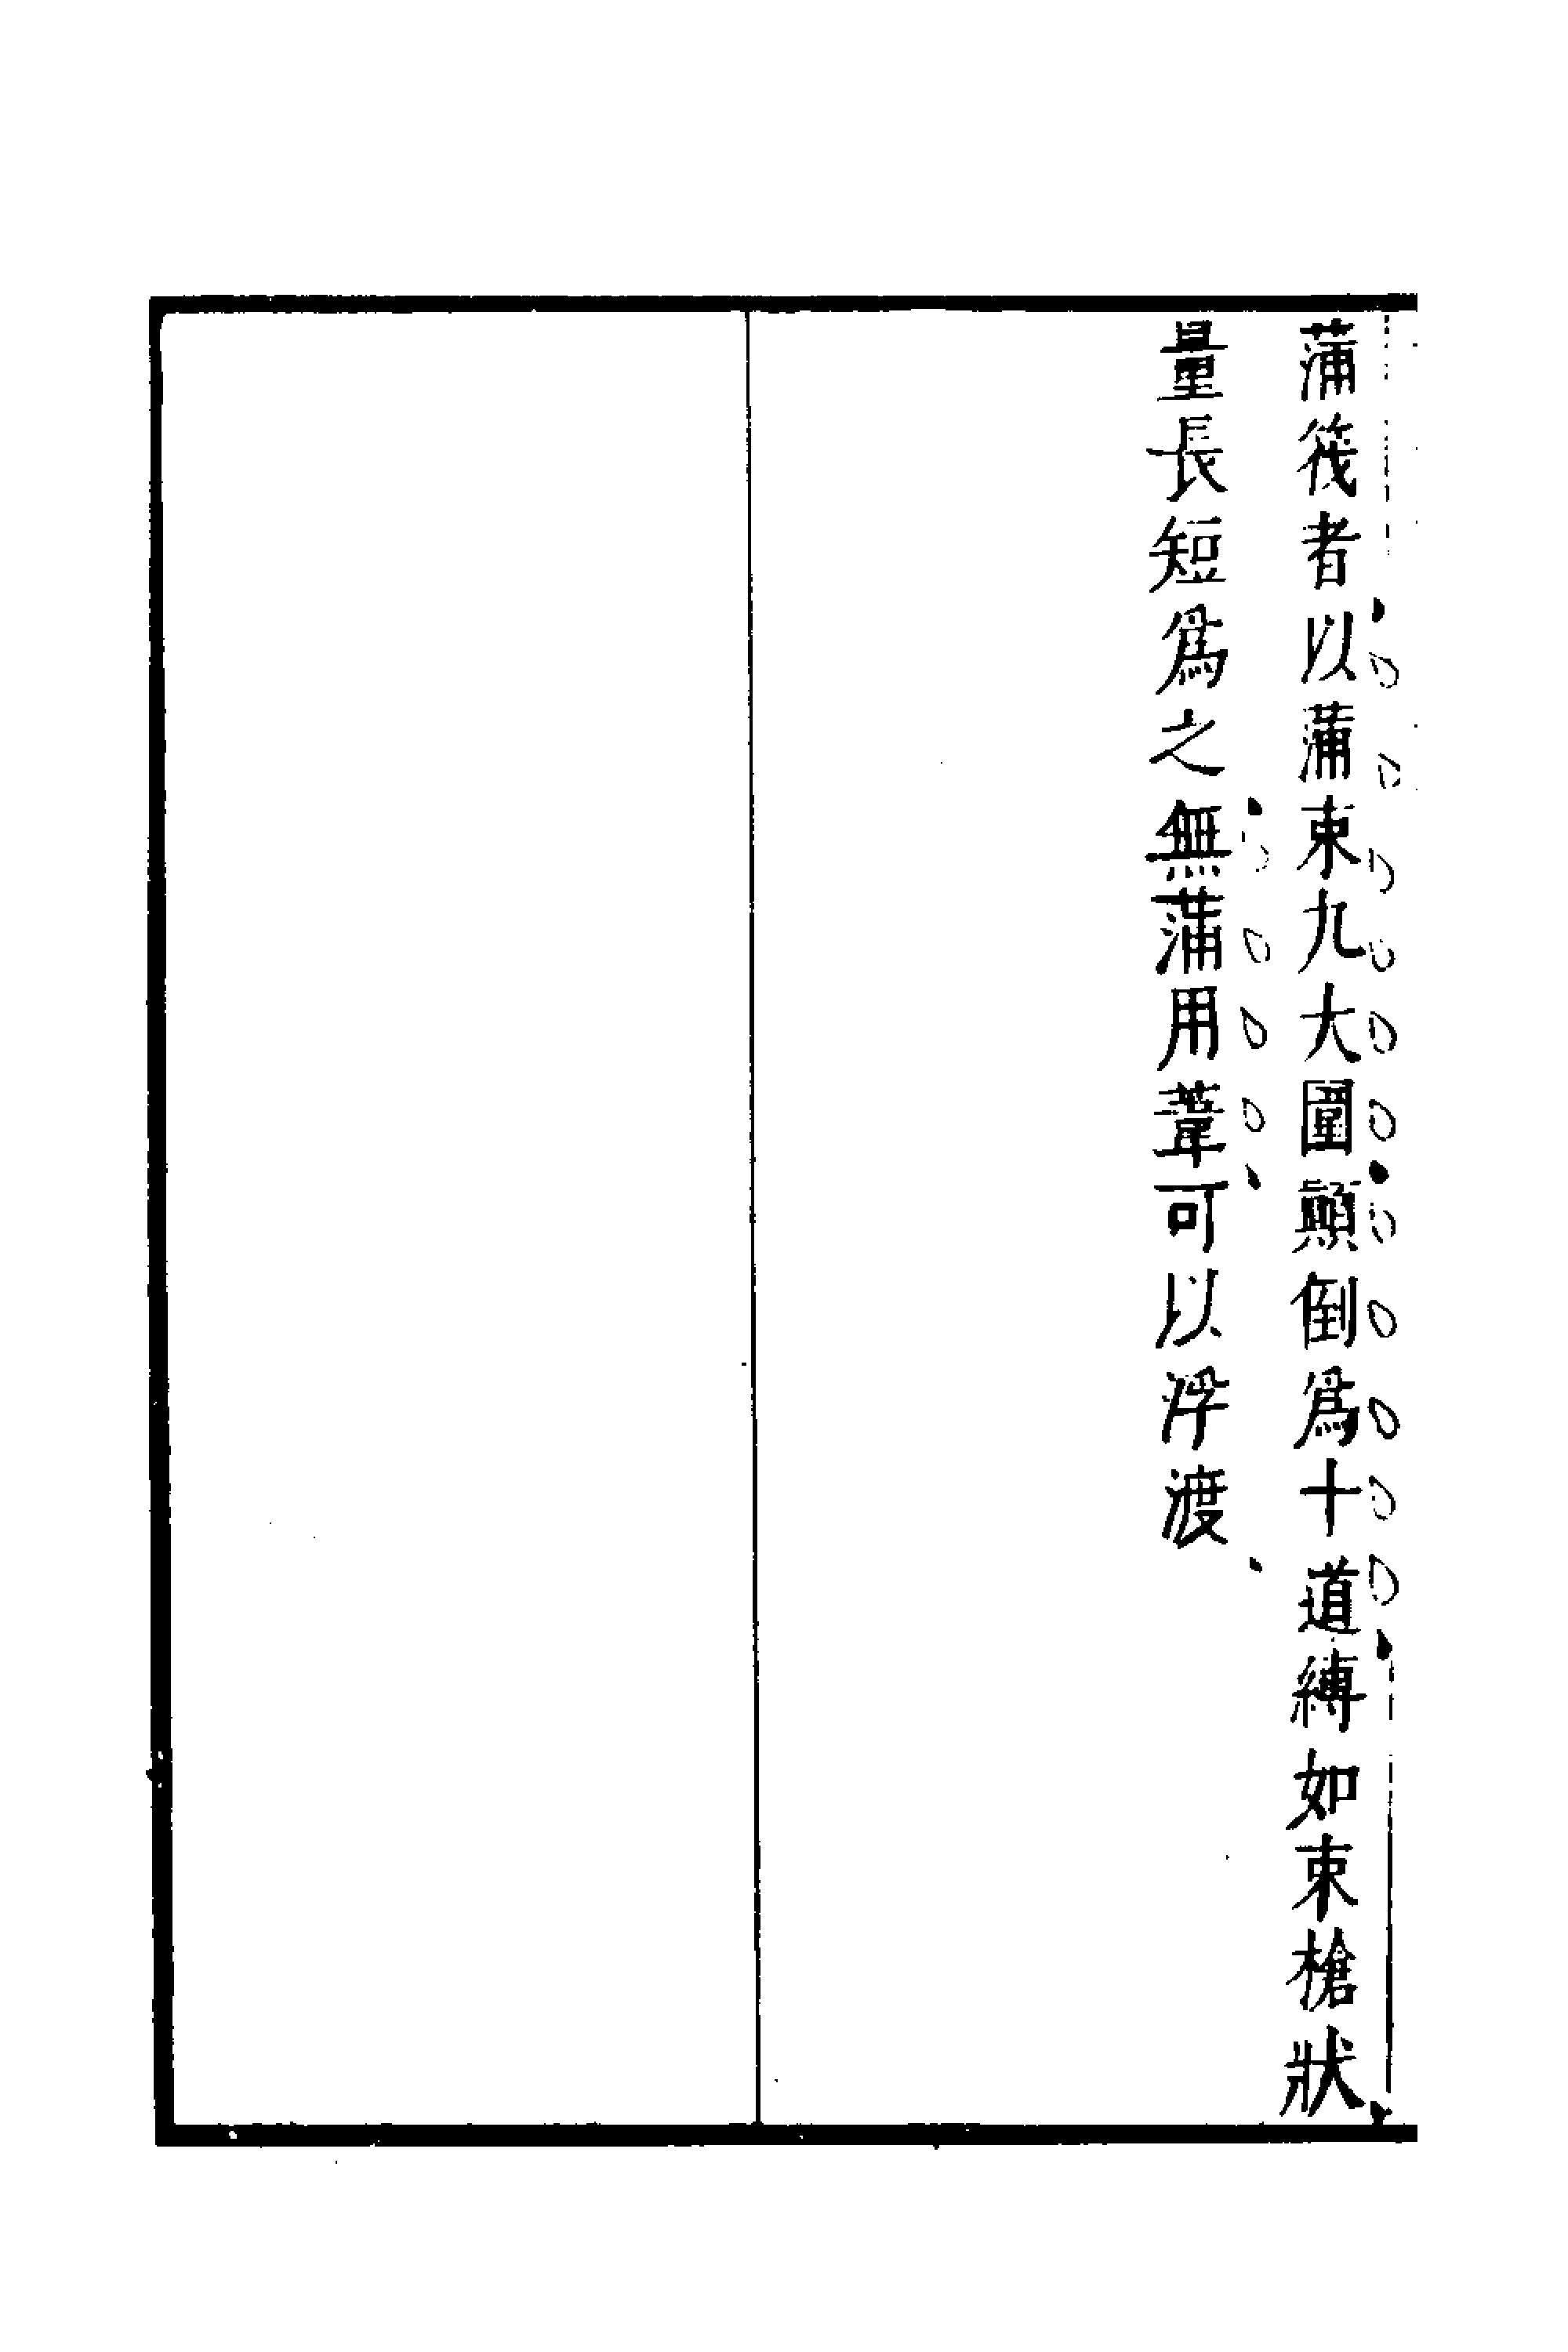 蒲筏者以蒲束九大圍顛倒爲十道縛如束槍狀
量長短爲之無蒲用葦可以浮渡